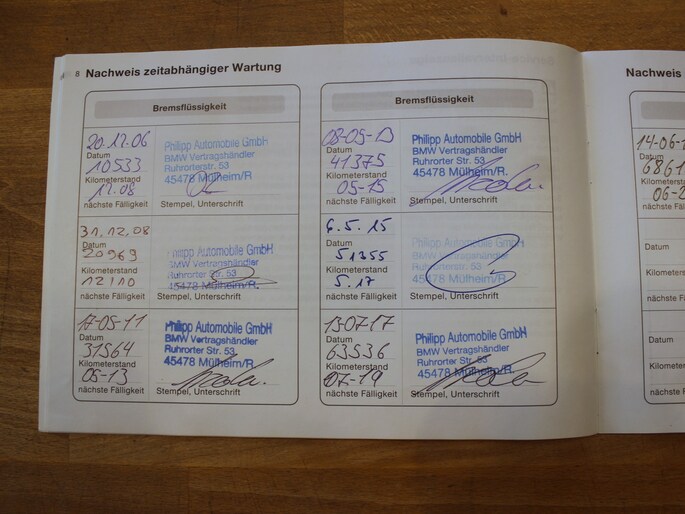 8 Nachweis zeitabhängiger Wartung
Bremsflüssigkeit
20.12.06
Datum
10533
Kilometerstand
12.08
nächste Fälligkeit
Philipp Automobile GmbH
BMW Vertragshändler
Ruhrorter Str. 53
45478 Mülheim/R.
Stempel, Unterschrift
31.12.08
Datum
20969
Kilometerstand
12/10
nächste Fälligkeit
Philipp Automobile GmbH
BMW Vertragshändler
Ruhrorter Str. 53
45478 Mülheim/R.
Stempel, Unterschrift
17-05-11
Datum
31564
Kilometerstand
05-13
nächste Fälligkeit
Philipp Automobile GmbH
BMW Vertragshändler
Ruhrorter Str. 53
45478 Mülheim/R.
Stempel, Unterschrift
Bremsflüssigkeit
08-05-13
Datum
41375
Kilometerstand
05-15
nächste Fälligkeit
Philipp Automobile GmbH
BMW Vertragshändler
Ruhrorter Str. 53
45478 Mülheim/R.
Stempel, Unterschrift
6.5.15
Datum
51355
Kilometerstand
5.17
nächste Fälligkeit
Philipp Automobile GmbH
BMW Vertragshändler
Ruhrorterstr. 53
45478 Mülheim/R.
Stempel, Unterschrift
13-07-17
Datum
63536
Kilometerstand
07-19
nächste Fälligkeit
Philipp Automobile GmbH
BMW Vertragshändler
Ruhrorter Str. 53
45478 Mülheim/R.
Stempel, Unterschrift
Nachweis
14-06-1
Datum
6861
Kilometers
06-2
nächste Fä
Datum
Kilometers
nächste Fä
Datum
Kilometers
nächste Fä